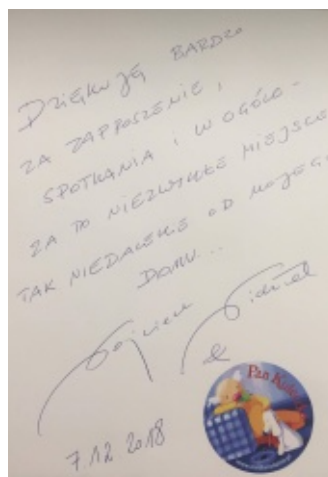 Dziękuję BARDZO
ZA ZAPROSZENIE,
SPOTKANIA i W OGÓLE -
ZA TO NIEZWYKŁE MIEJSCE
TAK NIEDALEKIE OD MOJEGO
DOMU...
&
7.12 2018
Pan